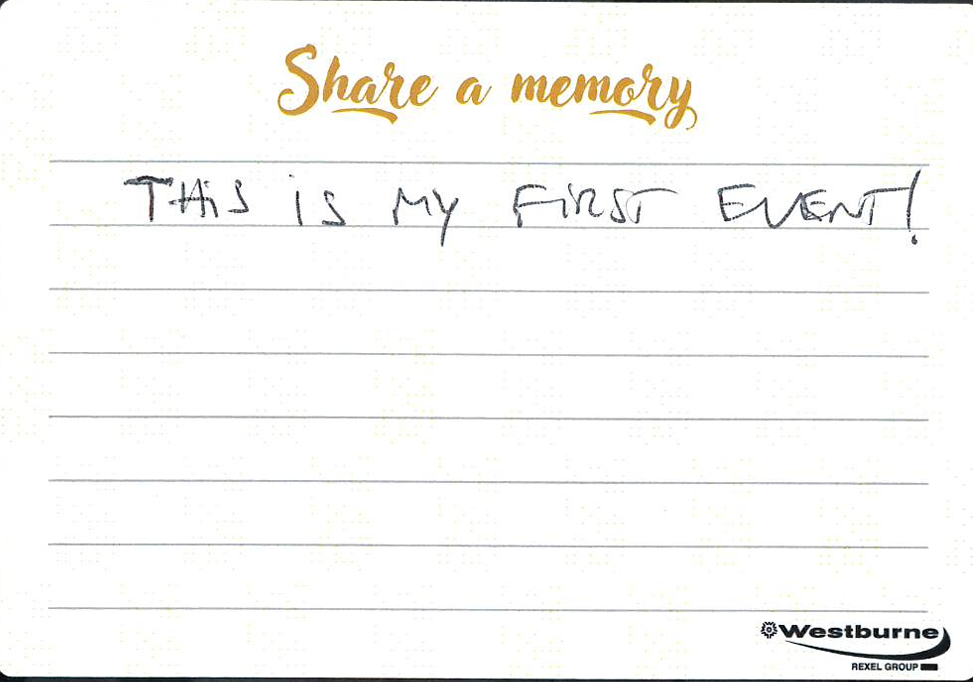 Share a memory
THiS iS MY FiRST EVENT!
Westburne
REXEL GROUP